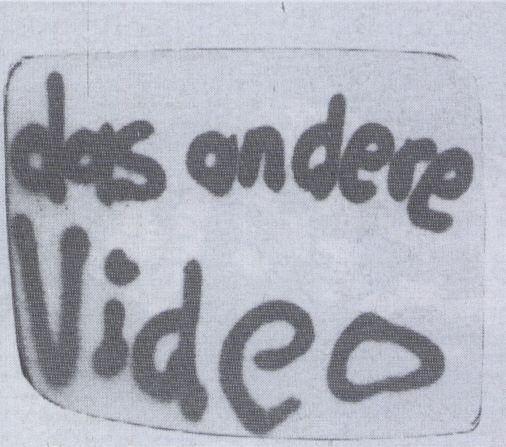 das andere
Video